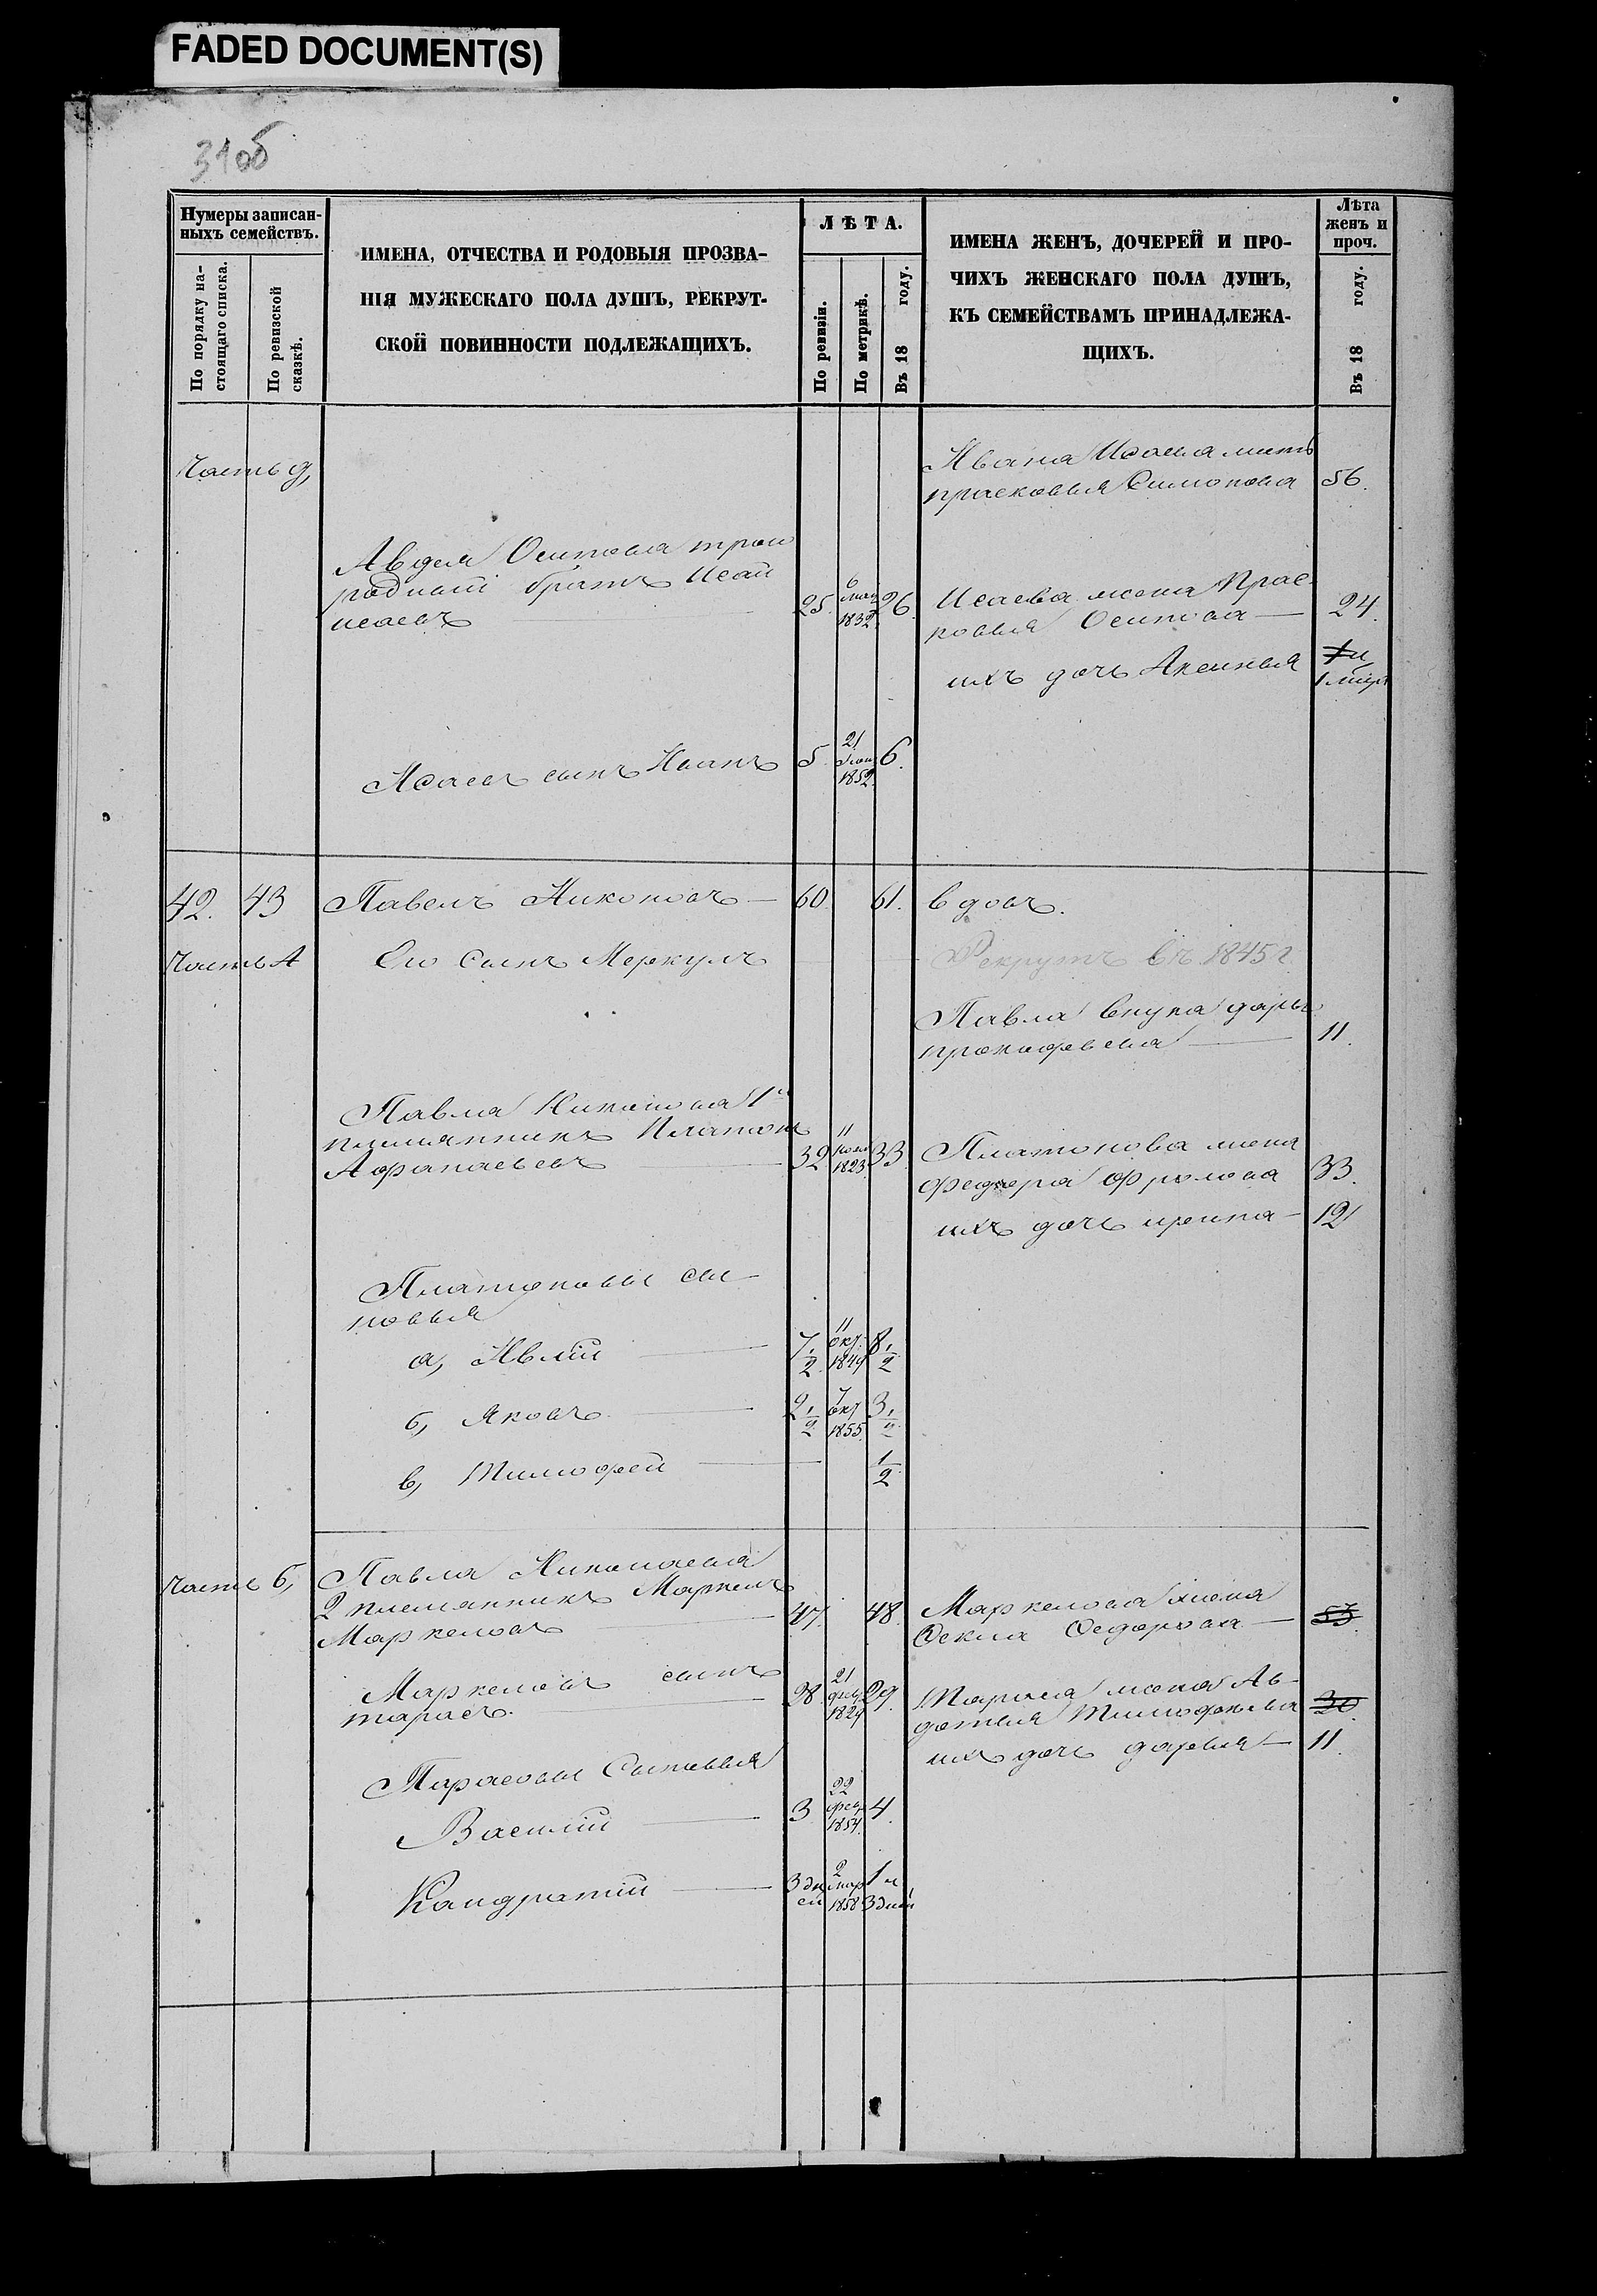 FADED DOCUMENT(S)
31об
Нумеры записан-
ныхъ семействъ.
По порядку на-
стоящаго списка.
По ревизской
сказкѣ.
ИМЕНА, ОТЧЕСТВА И РОДОВЫЯ ПРОЗВА-
НІЯ МУЖЕСКАГО ПОЛА ДУШЪ, РЕКРУТ-
СКОЙ ПОВИННОСТИ ПОДЛЕЖАЩИХЪ.
ЛѢТА.
По ревизіи.
По метрикѣ.
Въ 18 году.
ИМЕНА ЖЕНЪ, ДОЧЕРЕЙ И ПРО-
ЧИХЪ ЖЕНСКАГО ПОЛА ДУШЪ,
КЪ СЕМЕЙСТВАМЪ ПРИНАДЛЕЖА-
ЩИХЪ.
Лѣта
женъ и
проч.
Въ 18 году.
Часть д,
Ивана Исаева мать
прасковья Симонова 56.
Авдея Осипова трою
родный братъ Исай
исаевъ 25. 6 мая 1832. 26.
Исаева жена Прас-
ковья Осипова 24.
ихъ дочь Аксинья 1 и
Исаевъ сынъ Иванъ 5 21 1852. 6.
42. 43 Павелъ Никоновъ 60. 61. вдовъ.
Часть А Его Сынъ Меркулъ Рекрутъ въ 1845 г.
Павла внука дарья
прокофьевна 11.
Павла Никонова 1й
племянникъ Платонъ
Афанасьевъ 32 11 нояб 1823 33.
Платонова жена
Федора Фролова 33.
ихъ дочь ирина 12
Платоновы сы-
новья
а, Ивлій 7 1/2 11 окт. 1849 8 1/2
б, Яковъ 2 1/2 7 окт 1855. 3 1/2
в, Тимофей 1/2
Часть б, Павла Николаева
2 племянникъ Маркелъ
Маркеловъ 47. 48.
Маркелова жена
Фекла Федорова 53.
Маркеловъ сынъ
тарасъ. 28. 21 фев 1829 29.
Тараса жена Ав-
дотья Тимофеева 30.
ихъ дочь дарья 11.
Тарасовы Сыновья
Василій 3 22 фев 1854. 4.
Кандратій 3 дн
ей 2 мар 1858 1 и
3 дней